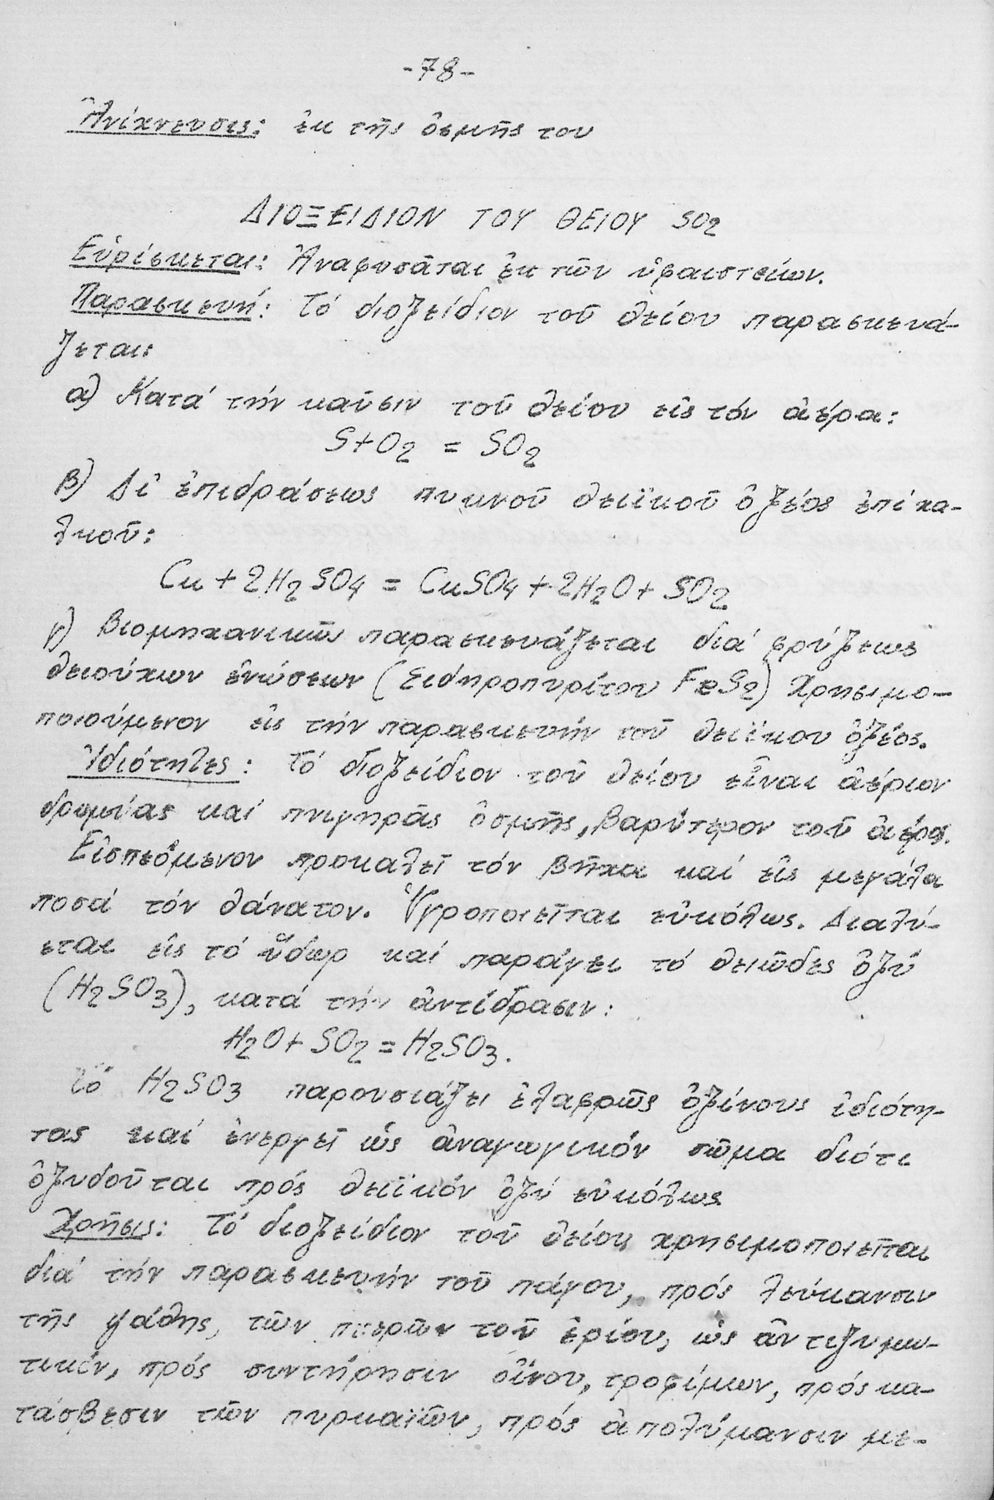 -78-
Ἀνίχνευσις: ἐκ τῆς ὀσμῆς του
ΔΙΟΞΕΙΔΙΟΝ ΤΟΥ ΘΕΙΟΥ SO2
Εὑρίσκεται: Ἀναφυσᾶται ἐκ τῶν ὑφαιστείων.
Παρασκευή: Τό διοξείδιον τοῦ θείου παρασκευά-
ζεται:
α) Κατά τήν καῦσιν τοῦ θείου εἰς τόν ἀέρα:
S+O2 = SO2
β) Δι' ἐπιδράσεως πυκνοῦ θειϊκοῦ ὀξέος ἐπί χα-
λκοῦ:
Cu + 2H2SO4 = CuSO4 + 2H2O + SO2
γ) Βιομηχανικῶς παρασκευάζεται διά φρύξεως
θειούχων ἑνώσεων (Σιδηροπυρίτου FeS2) Χρησιμο-
ποιούμενον εἰς τήν παρασκευήν τοῦ θειϊκου ὀξέος.
Ἰδιότητες: Τό διοξείδιον τοῦ θείου εἶναι ἀέριον
δρυμύας καί πνιγηρᾶς ὀσμῆς, βαρύτερον τοῦ ἀέρος.
Εἰσπεόμενον προκαλεῖ τόν βῆχα καί εἰς μεγάλα
ποσά τόν θάνατον. Ὑγροποιεῖται εὐκόλως. Διαλύ-
εται εἰς τό ὕδωρ καί παράγει τό θειῶδες ὀξύ
(H2SO3), κατά τήν ἀντίδρασιν:
H2O + SO2 = H2SO3.
Τό H2SO3 παρουσιάζει ἐλαφρῶς ὀξίνους ἰδιότη-
τας καί ἐνεργεῖ ὡς ἀναγωγικόν σῶμα διότι
ὀξυδοῦται πρός θειϊκόν ὀξύ εὐκόλως
Χρῆσις: Τό διοξείδιον τοῦ θείου χρησιμοποιεῖται
διά τήν παρασκευήν τοῦ πάγου, πρός λεύκανσιν
τῆς ψάθης, τῶν πτερῶν τοῦ ἐρίου, ὡς ἀντιζυμω-
τικόν, πρός συντήρησιν οἴνου, τροφίμων, πρός κα-
τάσβεσιν τῶν πυρκαϊῶν, πρός ἀπολύμανσιν με-